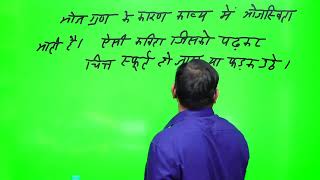 ओज गुण के कारण काव्य में ओजस्विता
आती है। ऐसी कविता जिसको पढ़कर
चित्त स्फूर्त हो जाय या फड़क उठे।